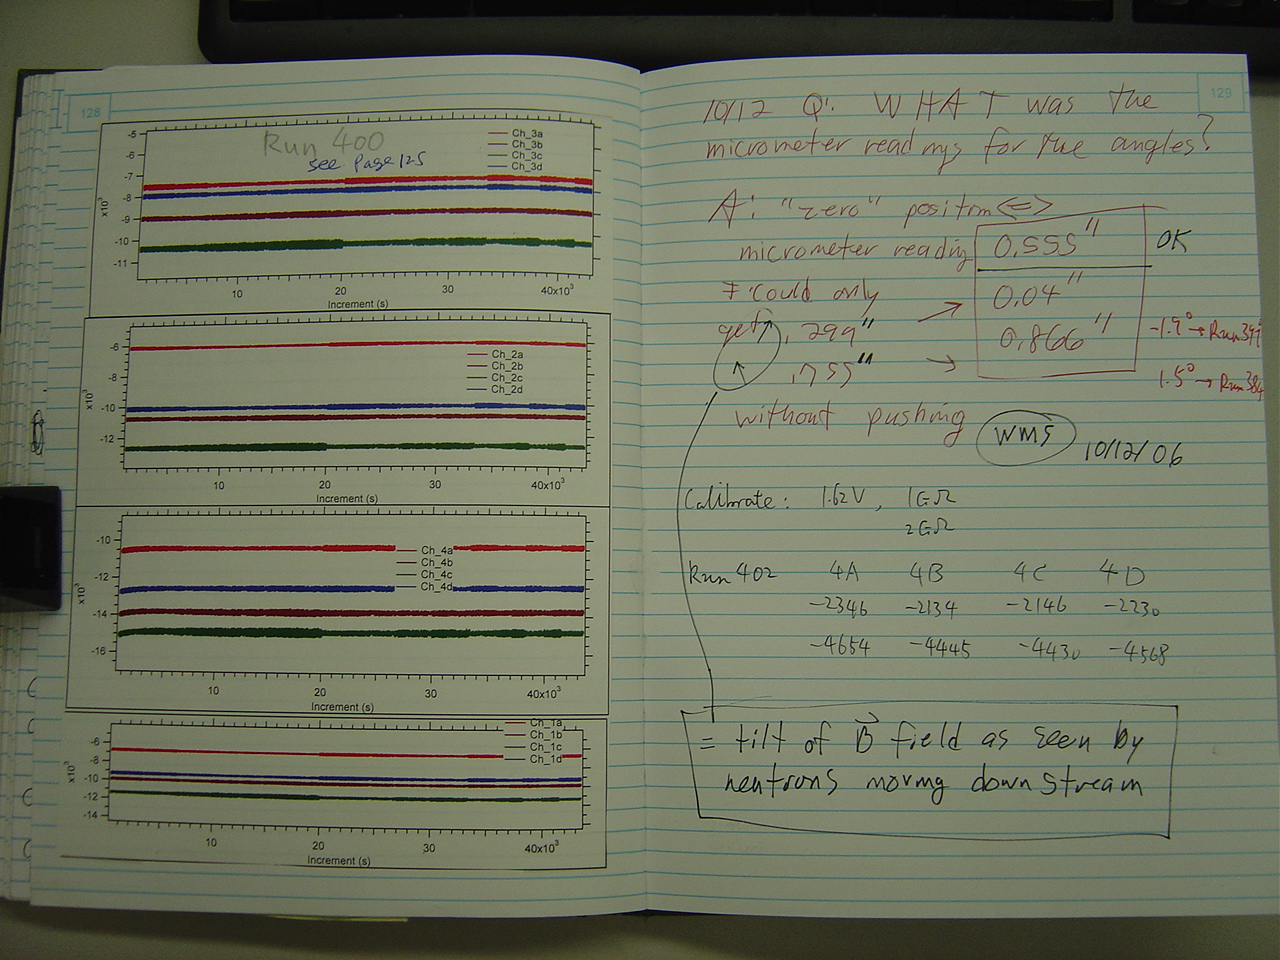 128
Run 400
see Page 125
Ch_3a
Ch_3b
Ch_3c
Ch_3d
-5
-6
-7
-8
-9
-10
-11
x10³
10 20 30 40x10³
Increment (s)
Ch_2a
Ch_2b
Ch_2c
Ch_2d
-6
-8
-10
-12
x10³
10 20 30 40x10³
Increment (s)
Ch_4a
Ch_4b
Ch_4c
Ch_4d
-10
-12
-14
-16
x10³
10 20 30 40x10³
Increment (s)
Ch_1a
Ch_1b
Ch_1c
Ch_1d
-6
-8
-10
-12
-14
x10³
10 20 30 40x10³
Increment (s)
129
10/12 Q: WHAT was the
micrometer readings for the angles?
A: "zero" position <=>
micrometer reading 0.555" OK
I could only → 0.04"
get .299" 0.866" -1.9° →
.755" → 1.5° →
without pushing
WMS 10/12/06
Calibrate: 1.62V, 1GΩ
2GΩ
Run 402 4A 4B 4C 4D
-2346 -2134 -2146 -2230
-4654 -4445 -4430 -4568
= tilt of B⃗ field as seen by
neutrons moving down stream